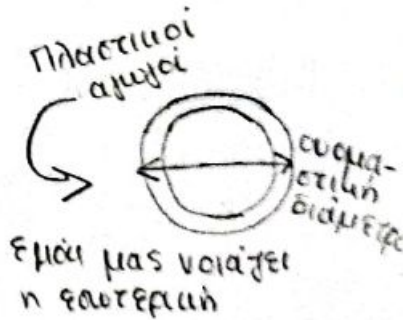 Πλαστικοί
αγωγοί
ονομα-
στική
διάμετρο
εμάς μας νοιάζει
η εσωτερική